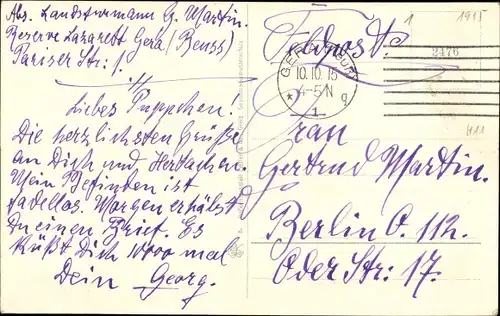 Abs. Landsturmmann G. Martin.
Reserve Lazarett Gera (Reuss)
Pariser Str: 1.
Liebes Puppchen!
Die herzlichsten Grüße
an Dich und Herbachen.
Mein Befinden ist
tadellos. Morgen erhälst
Du einen Brief. Es
Küßt Dich 10000 mal
Dein Georg.
1 1915
Feldpost.
2476
10.10.15
4-5N
* 1 g
H11
Frau
Gertrud Martin.
Berlin O. 112.
Oder Str: 17.